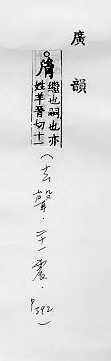 廣韻
○胤
繼也嗣也亦
姓羊晉切十一
(去聲.二十一震.P392)